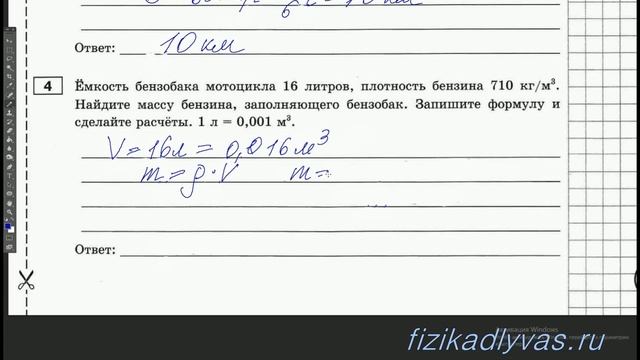 Ответ: 10 км
4
Ёмкость бензобака мотоцикла 16 литров, плотность бензина 710 кг/м³.
Найдите массу бензина, заполняющего бензобак. Запишите формулу и
сделайте расчёты. 1 л = 0,001 м³.
V = 16 л = 0,016 м³
m = ρ · V m =
Ответ:
Активация Windows
fizikadlyvas.ru